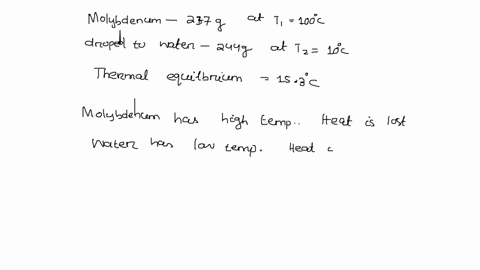 Molybdenum - 237 g at T1 = 100°C
droped to water - 244g at T2 = 10°C
Thermal equilbrium = 15.3°C
Molybdenum has high temp.. Heat is lost
Water has low temp. Head